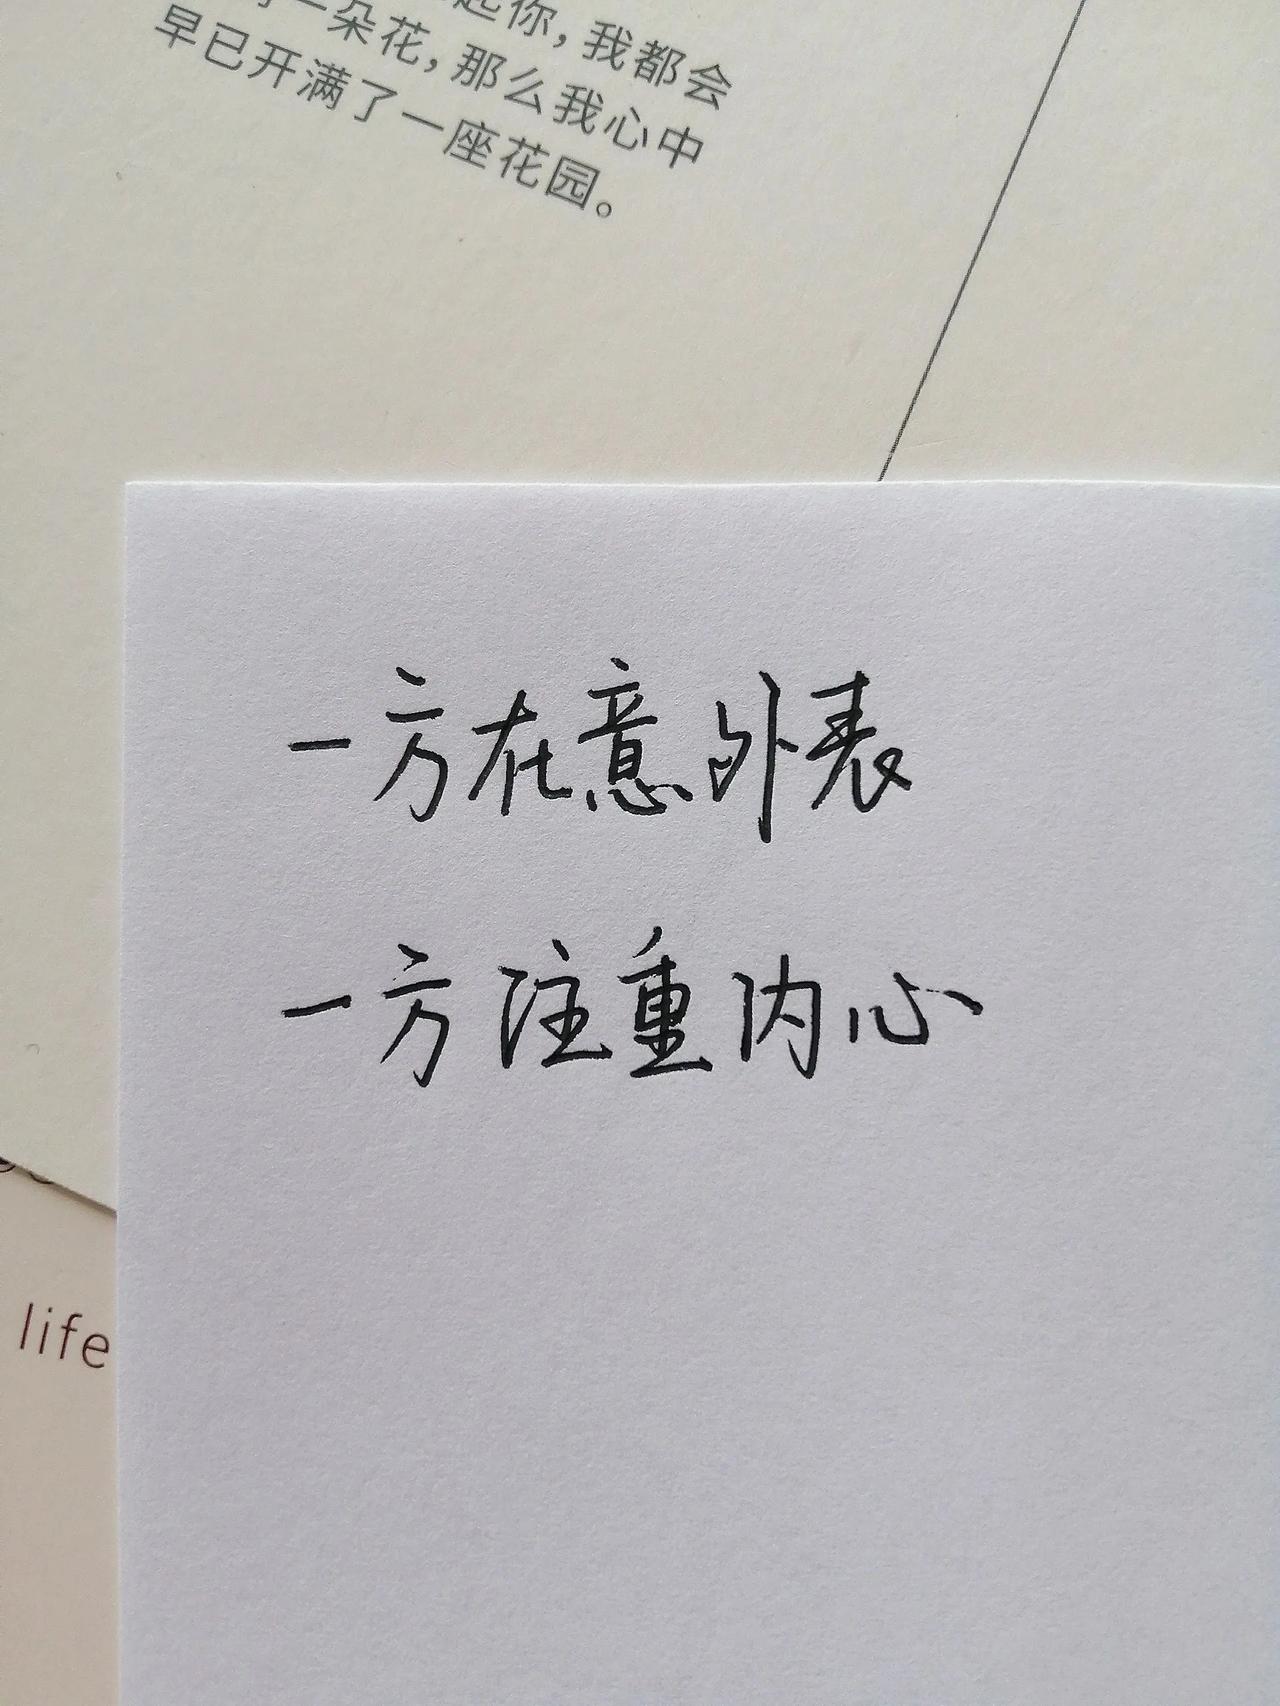 起你，我都会
一朵花，那么我心中
早已开满了一座花园。
一方在意外表
一方注重内心
life